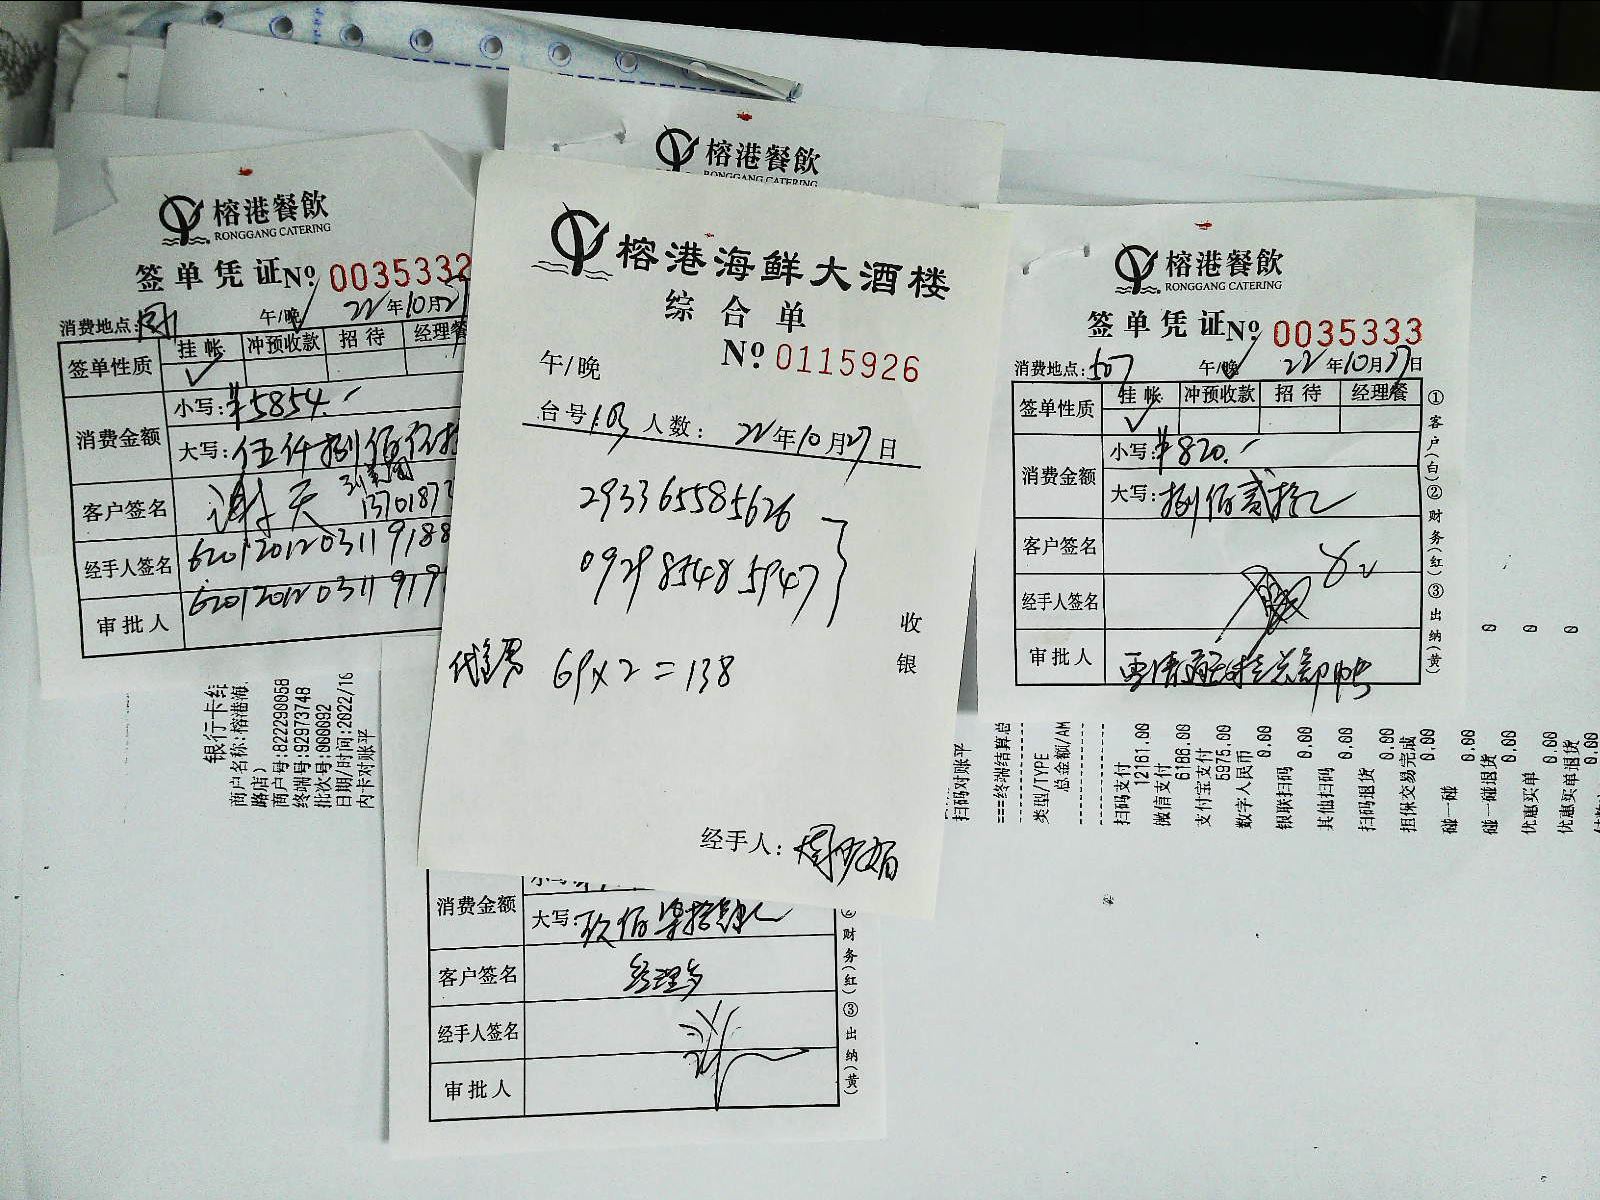 榕港餐飲
RONGGANG CATERING
签单凭证 № 0035332
消费地点: 午/晚 22年10月27
签单性质 挂帐 冲预收款 招待 经理餐
✓
消费金额 小写: ¥5854.-
大写: 伍仟捌佰伍拾
客户签名 谢天
1370187
经手人签名 6201201203119188
审批人 620120120311919
银行卡结
商户名称:榕港海
路店)
商户号:822290058
终端号:92973748
批次号:000092
日期/时间:2022/10
内卡对账平
榕港餐飲
RONGGANG CATERING
榕港海鲜大酒楼
综合单
№ 0115926
午/晚
台号 103 人数: 22年10月27日
293365585626
092985485947
收银
69×2=138
经手人:
消费金额
大写: 玖佰柒拾肆元
客户签名 经理多
经手人签名
审批人
财务(红)③出纳(黄)
榕港餐飲
RONGGANG CATERING
签单凭证 № 0035333
消费地点: 507 午/晚 22年10月27日
签单性质 挂帐 冲预收款 招待 经理餐
✓
消费金额 小写: ¥820.-
大写: 捌佰贰拾元
客户签名
经手人签名
审批人
①客户(白)②财务(红)③出纳(黄)
扫码对账平
===终端结算总
类型/TYPE
总金额/AM
扫码支付
12161.00
微信支付
6186.00
支付宝支付
5975.00
数字人民币
0.00
银联扫码
0.00
其他扫码
0.00
扫码退货
0.00
担保交易完成
0.00
碰一碰
0.00
0
碰一碰退货
0.00
0
优惠买单
0.00
0
优惠买单退货
0.00